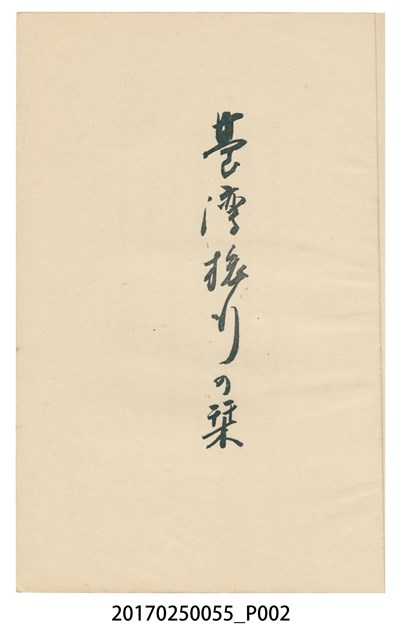 臺湾旅行の栞
20170250055_P002